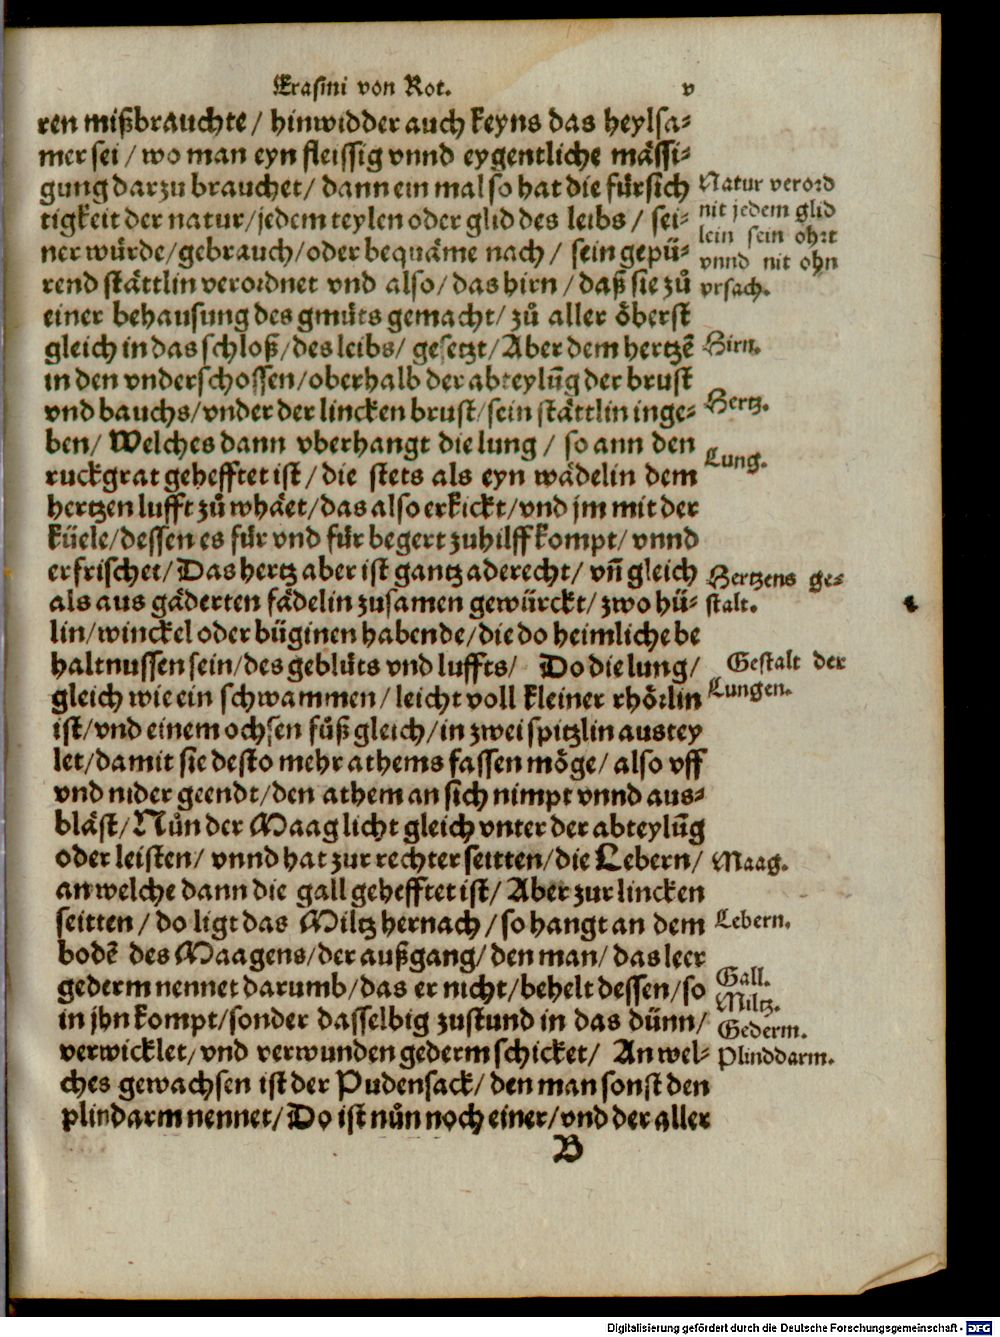 Erasmi von Rot. v
ren mißbrauchte / hinwidder auch keyns das heylsa⸗
mer sei / wo man eyn fleissig vnnd eygentliche mässi⸗
gung darzu brauchet / dann ein mal so hat die fürsich
tigkeit der natur / jedem teylen oder glid des leibs / sei⸗
ner würde / gebrauch / oder bequäme nach / sein gepü⸗
rend stättlin verordnet vnd also / das hirn / daß sie zů
einer behausung des gmüts gemacht / zů aller öberst
gleich in das schloß / des leibs / gesetzt / Aber dem hertzē
in den vnderschossen / oberhalb der abteylūg der brust
vnd bauchs / vnder der lincken brust / sein stättlin inge⸗
ben / Welches dann vberhangt die lung / so ann den
ruckgrat gehefftet ist / die stets als eyn wädelin dem
hertzen lufft zů whäet / das also erkickt / vnd jm mit der
küele / dessen es für vnd für begert zuhilff kompt / vnnd
erfrischet / Das hertz aber ist gantz aderecht / vñ gleich
als aus gäderten fädelin zusamen gewürckt / zwo hü⸗
lin / winckel oder büginen habende / die do heimliche be
haltnussen sein / des geblüts vnd luffts / Do die lung /
gleich wie ein schwammen / leicht voll kleiner rhörlin
ist / vnd einem ochsen fůß gleich / in zwei spitzlin austey
let / damit sie desto mehr athems fassen möge / also vff
vnd nider geendt / den athem an sich nimpt vnnd aus⸗
bläst / Nůn der Maag licht gleich vnter der abteylūg
oder leisten / vnnd hat zur rechter seitten / die Lebern /
an welche dann die gall gehefftet ist / Aber zur lincken
seitten / do ligt das Miltz hernach / so hangt an dem
bodē des Maagens / der außgang / den man / das leer
gederm nennet darumb / das er nicht / behelt dessen / so
in jhn kompt / sonder dasselbig zustund in das dünn /
verwicklet / vnd verwunden gederm schicket / An wel⸗
ches gewachsen ist der Pudensack / den man sonst den
plindarm nennet / Do ist nůn noch einer / vnd der aller
B
Natur verord
nit jedem glid
lein sein ohrt
vnnd nit ohn
vrsach.
Hirn.
Hertz.
Lung.
Hertzens ge⸗
stalt.
Gestalt der
Lungen.
Maag.
Lebern.
Gall.
Miltz.
Gederm.
Plinddarm.
Digitalisierung gefördert durch die Deutsche Forschungsgemeinschaft - DFG